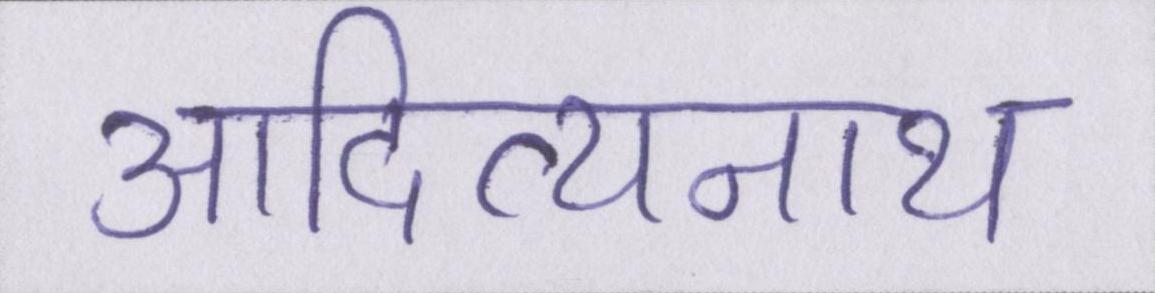 आदित्यनाथ